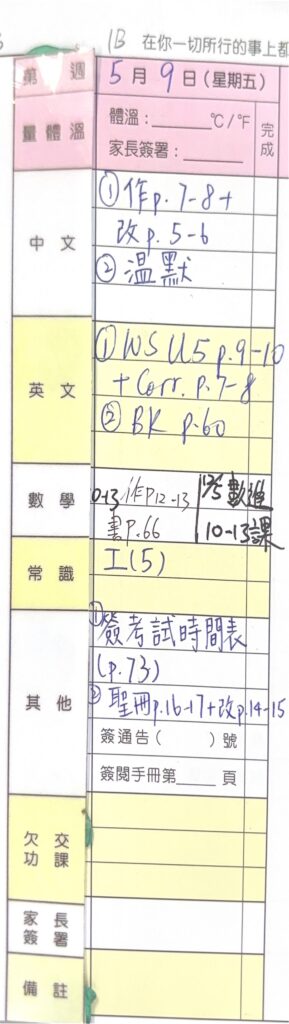 1B 在你一切所行的事上都
第 週 5月9日(星期五)
量體溫 體溫:______℃/℉ 完成
家長簽署:______
中文 ①作p.7-8+
改p.5-6
②溫默
英文 ①WS U5 p.9-10
+ Corr. p.7-8
② BK p.60
數學 作P12-13 12/5 數進
書P.66 10-13課
常識 工(5)
其他 ①簽考試時間表
(p.73)
②聖冊p.16-17+改p.14-15
簽通告( )號
簽閱手冊第____頁
欠交功課
家長簽署
備註